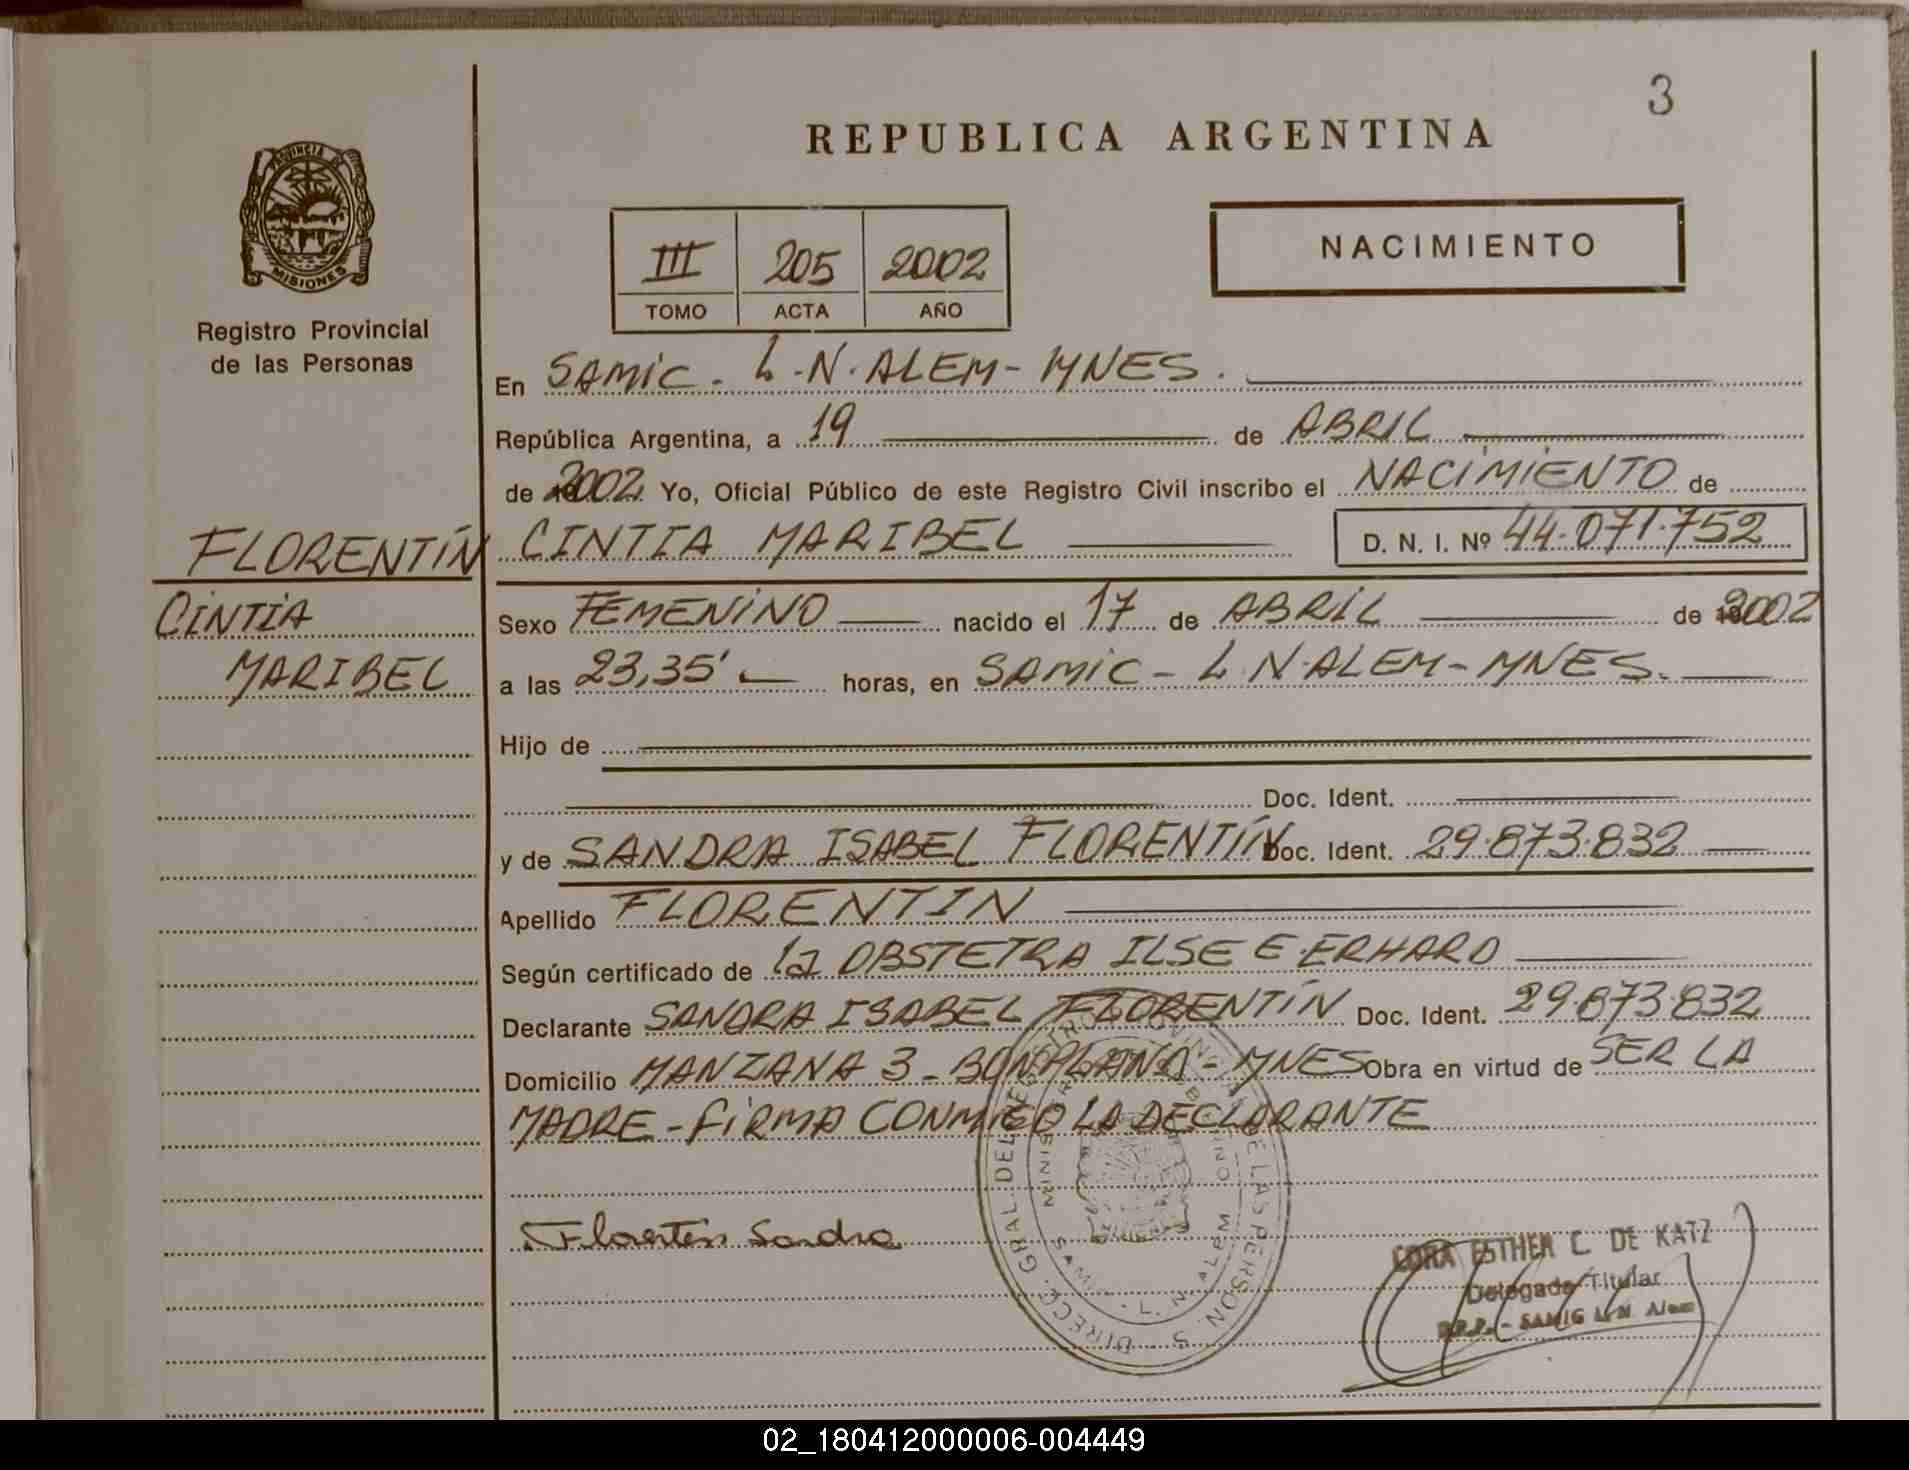 3
REPUBLICA ARGENTINA
PROVINCIA DE
MISIONES
Registro Provincial
de las Personas
III 205 2002
TOMO ACTA AÑO
NACIMIENTO
En SAMIC - L.N. ALEM - MNES.
República Argentina, a 19 de ABRIL
de 2002 Yo, Oficial Público de este Registro Civil inscribo el NACIMIENTO de
FLORENTÍN CINTIA MARIBEL D. N. I. Nº 44.071.752
CINTIA
MARIBEL
Sexo FEMENINO nacido el 17 de ABRIL de 2002
a las 23,35' horas, en SAMIC - L.N. ALEM - MNES.
Hijo de
Doc. Ident.
y de SANDRA ISABEL FLORENTÍN Doc. Ident. 29.873.832
Apellido FLORENTIN
Según certificado de la OBSTETRA ILSE E. ERHARD
Declarante SANDRA ISABEL FLORENTÍN Doc. Ident. 29.873.832
Domicilio MANZANA 3 - BONPLAND - MNES Obra en virtud de SER LA
MADRE - FIRMA CONMIGO LA DECLARANTE
Florentin Sandra
CORA ESTHER C. DE KATZ
Delegada Titular
R.P.P. - SAMIC L. N. Alem
02_180412000006-004449